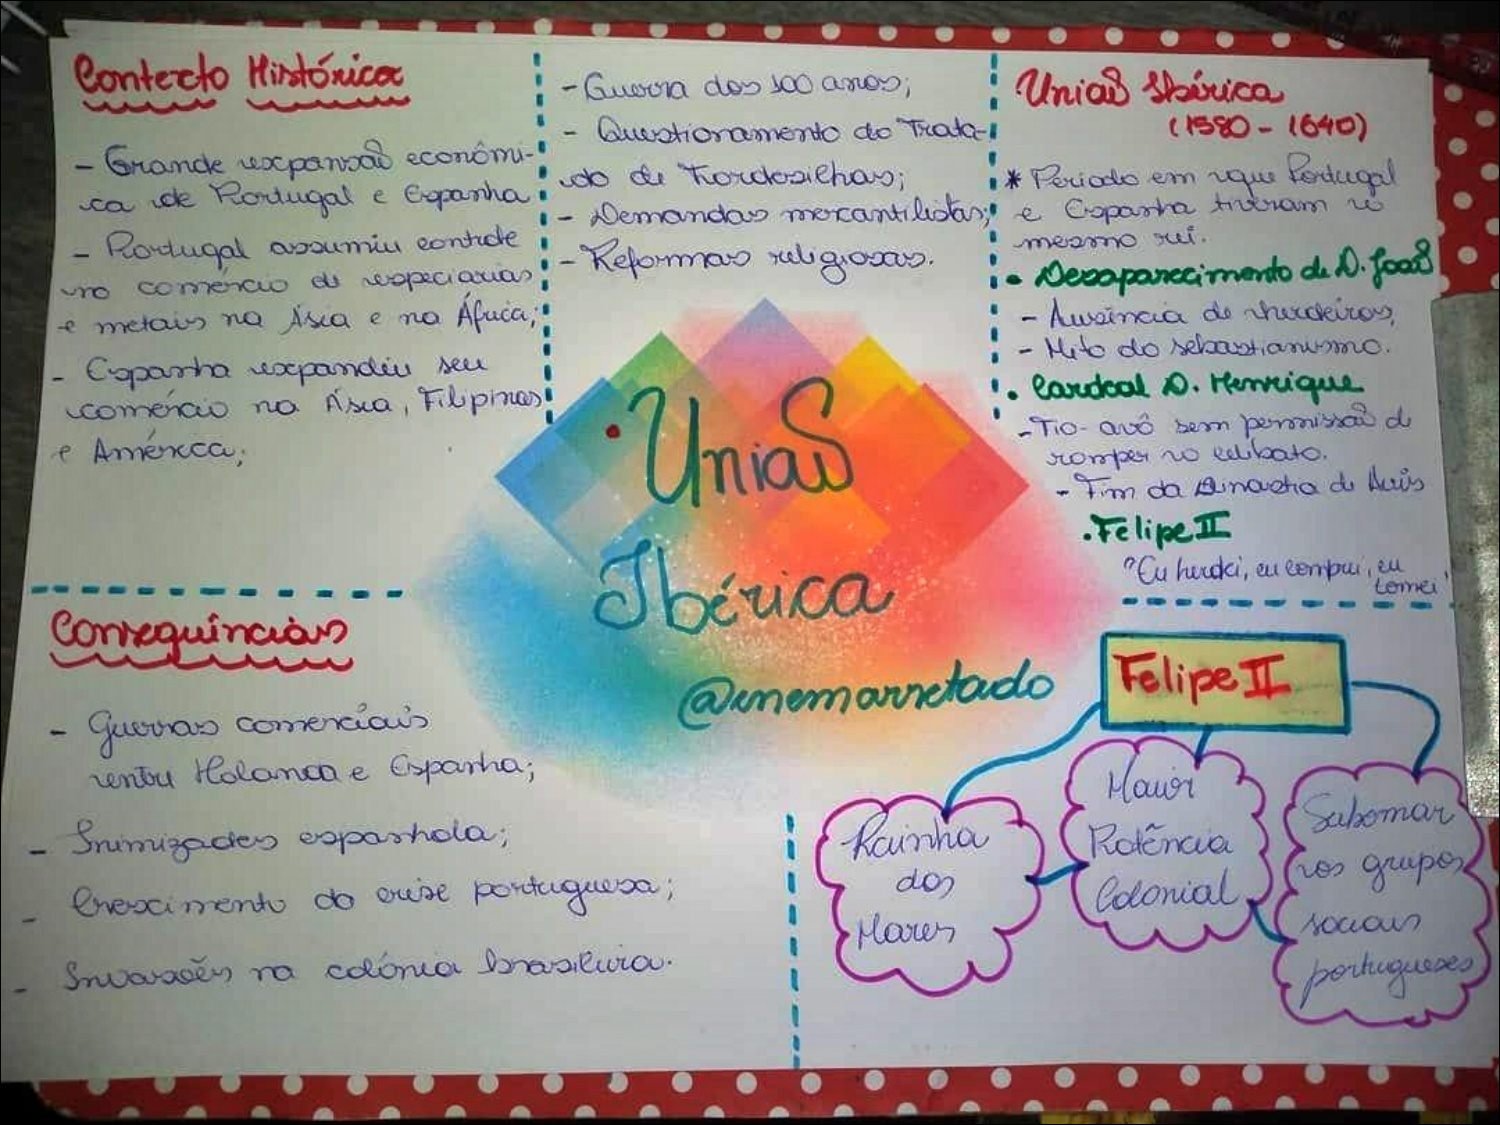 Contexto Histórico
- Grande expansão econômi-
ca de Portugal e Espanha
- Portugal assumiu controle
no comércio de especiarias
e metais na Ásia e na África;
- Espanha expandiu seu
comércio na Ásia, Filipinas
e América;
- Guerra dos 100 anos;
- Questionamento do Trata-
do de Tordesilhas;
- Demandas mercantilistas;
- Reformas religiosas.
União Ibérica
(1580 - 1640)
* Período em que Portugal
e Espanha tiveram o
mesmo rei.
• Desaparecimento de D. João
- Ausência de herdeiros,
- Mito do sebastianismo.
• Cardeal D. Henrique
- Tio-avô sem permissão de
romper o celibato.
- Fim da Dinastia de Avis
• Felipe II
"Eu herdei, eu comprei, eu
tomei"
• União
Ibérica
@enemarretado
Consequências
- Guerras comerciais
entre Holanda e Espanha;
- Inimizades espanhola;
- Crescimento da crise portuguesa;
- Invasões na colônia brasileira.
Felipe II
Rainha
dos
Mares
Maior
Potência
Colonial
Subornar
os grupos
sociais
portugueses